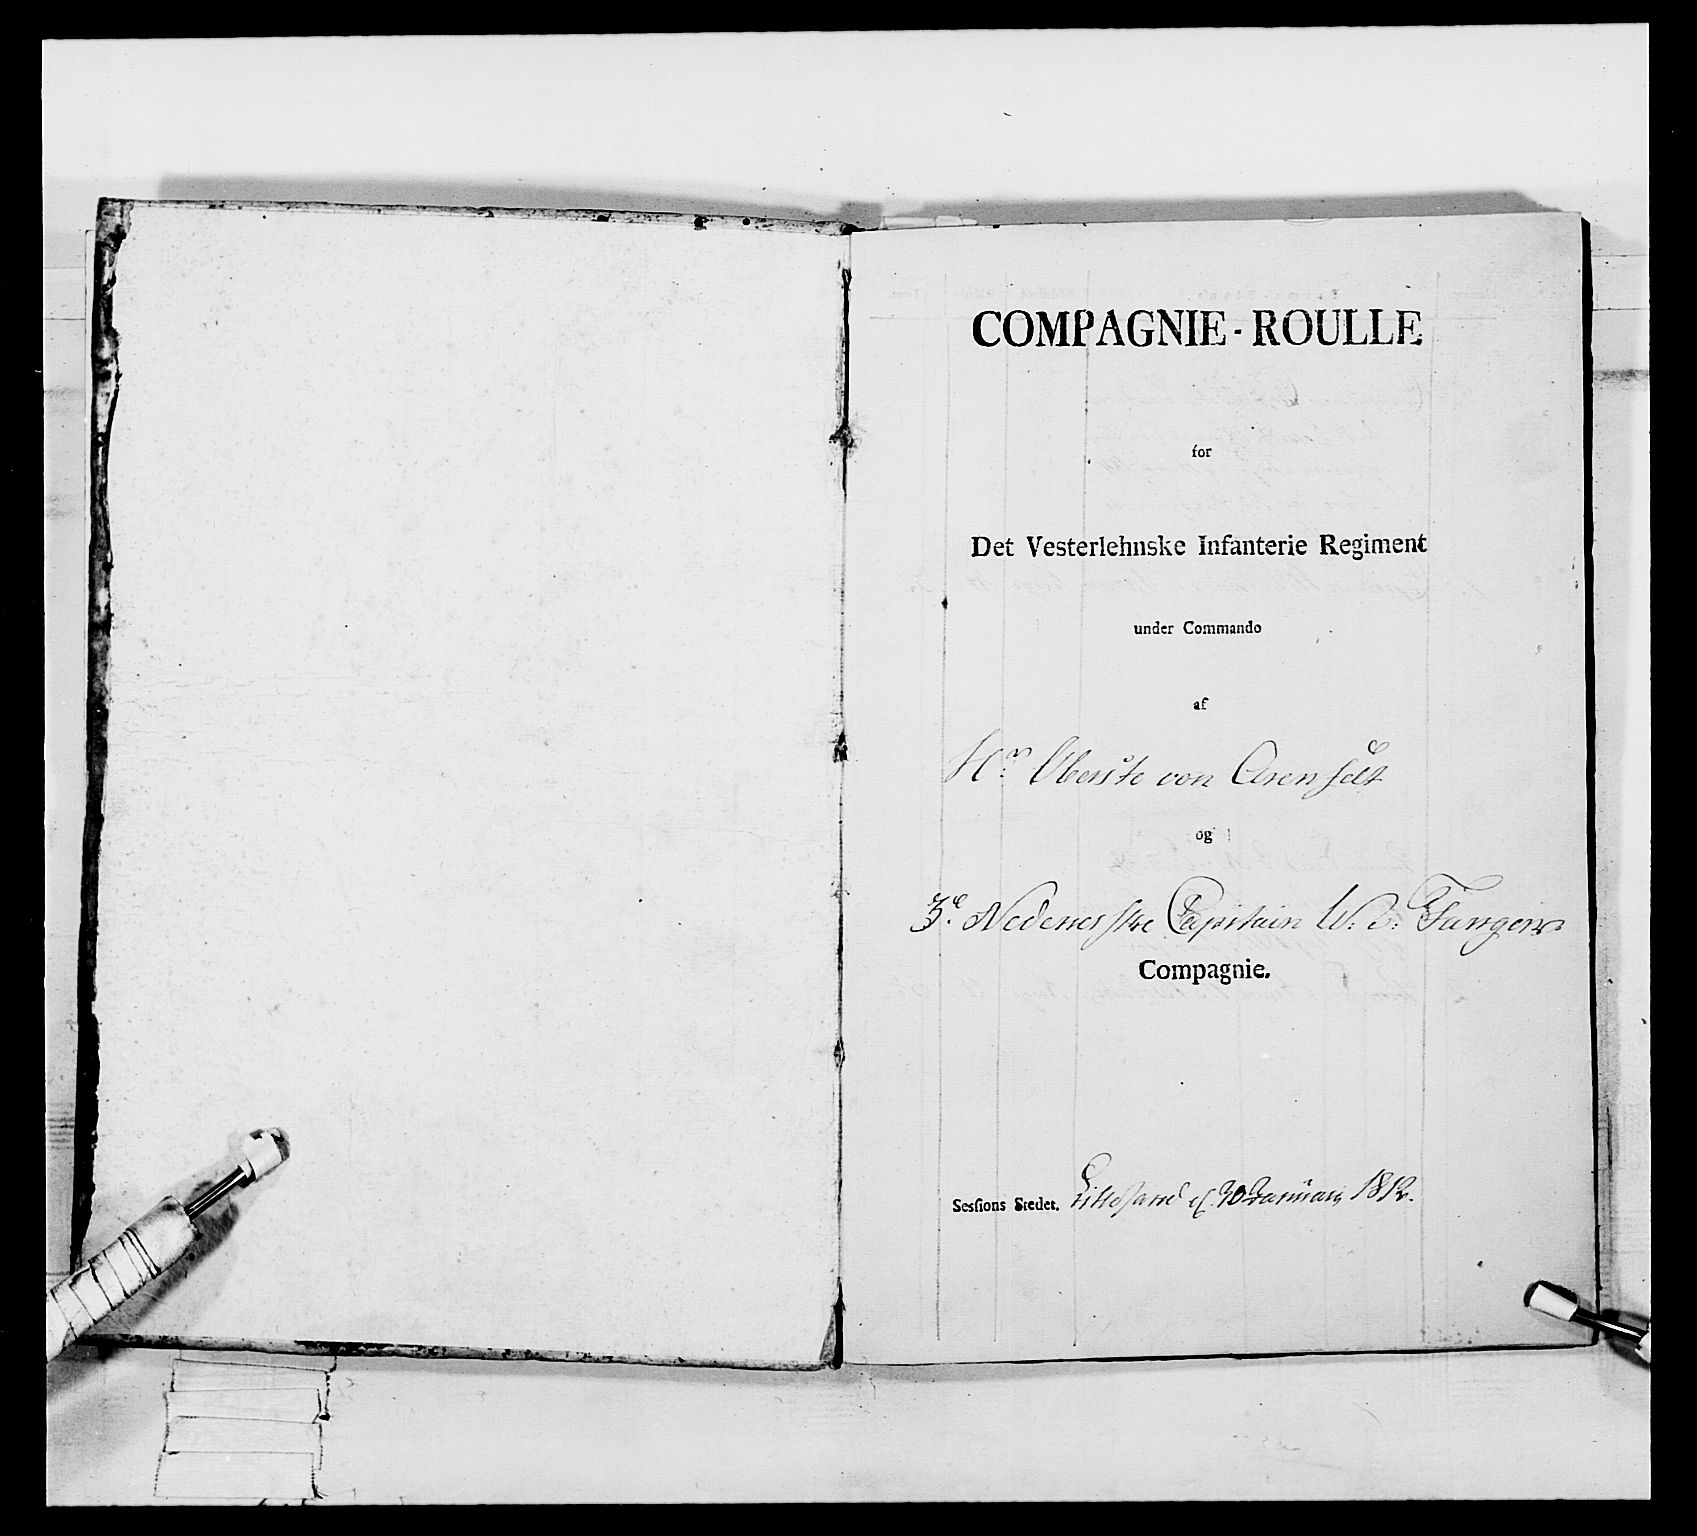 COMPAGNIE-ROULLE
for
Det Vesterlehnske Infanterie Regiment
under Commando
af
Hr: Oberste von Arenfelt
og
3e Nedenesske Capitain W. Fangens
Compagnie.
Sesſions Stedet. Lillesand d. Januari 1812.